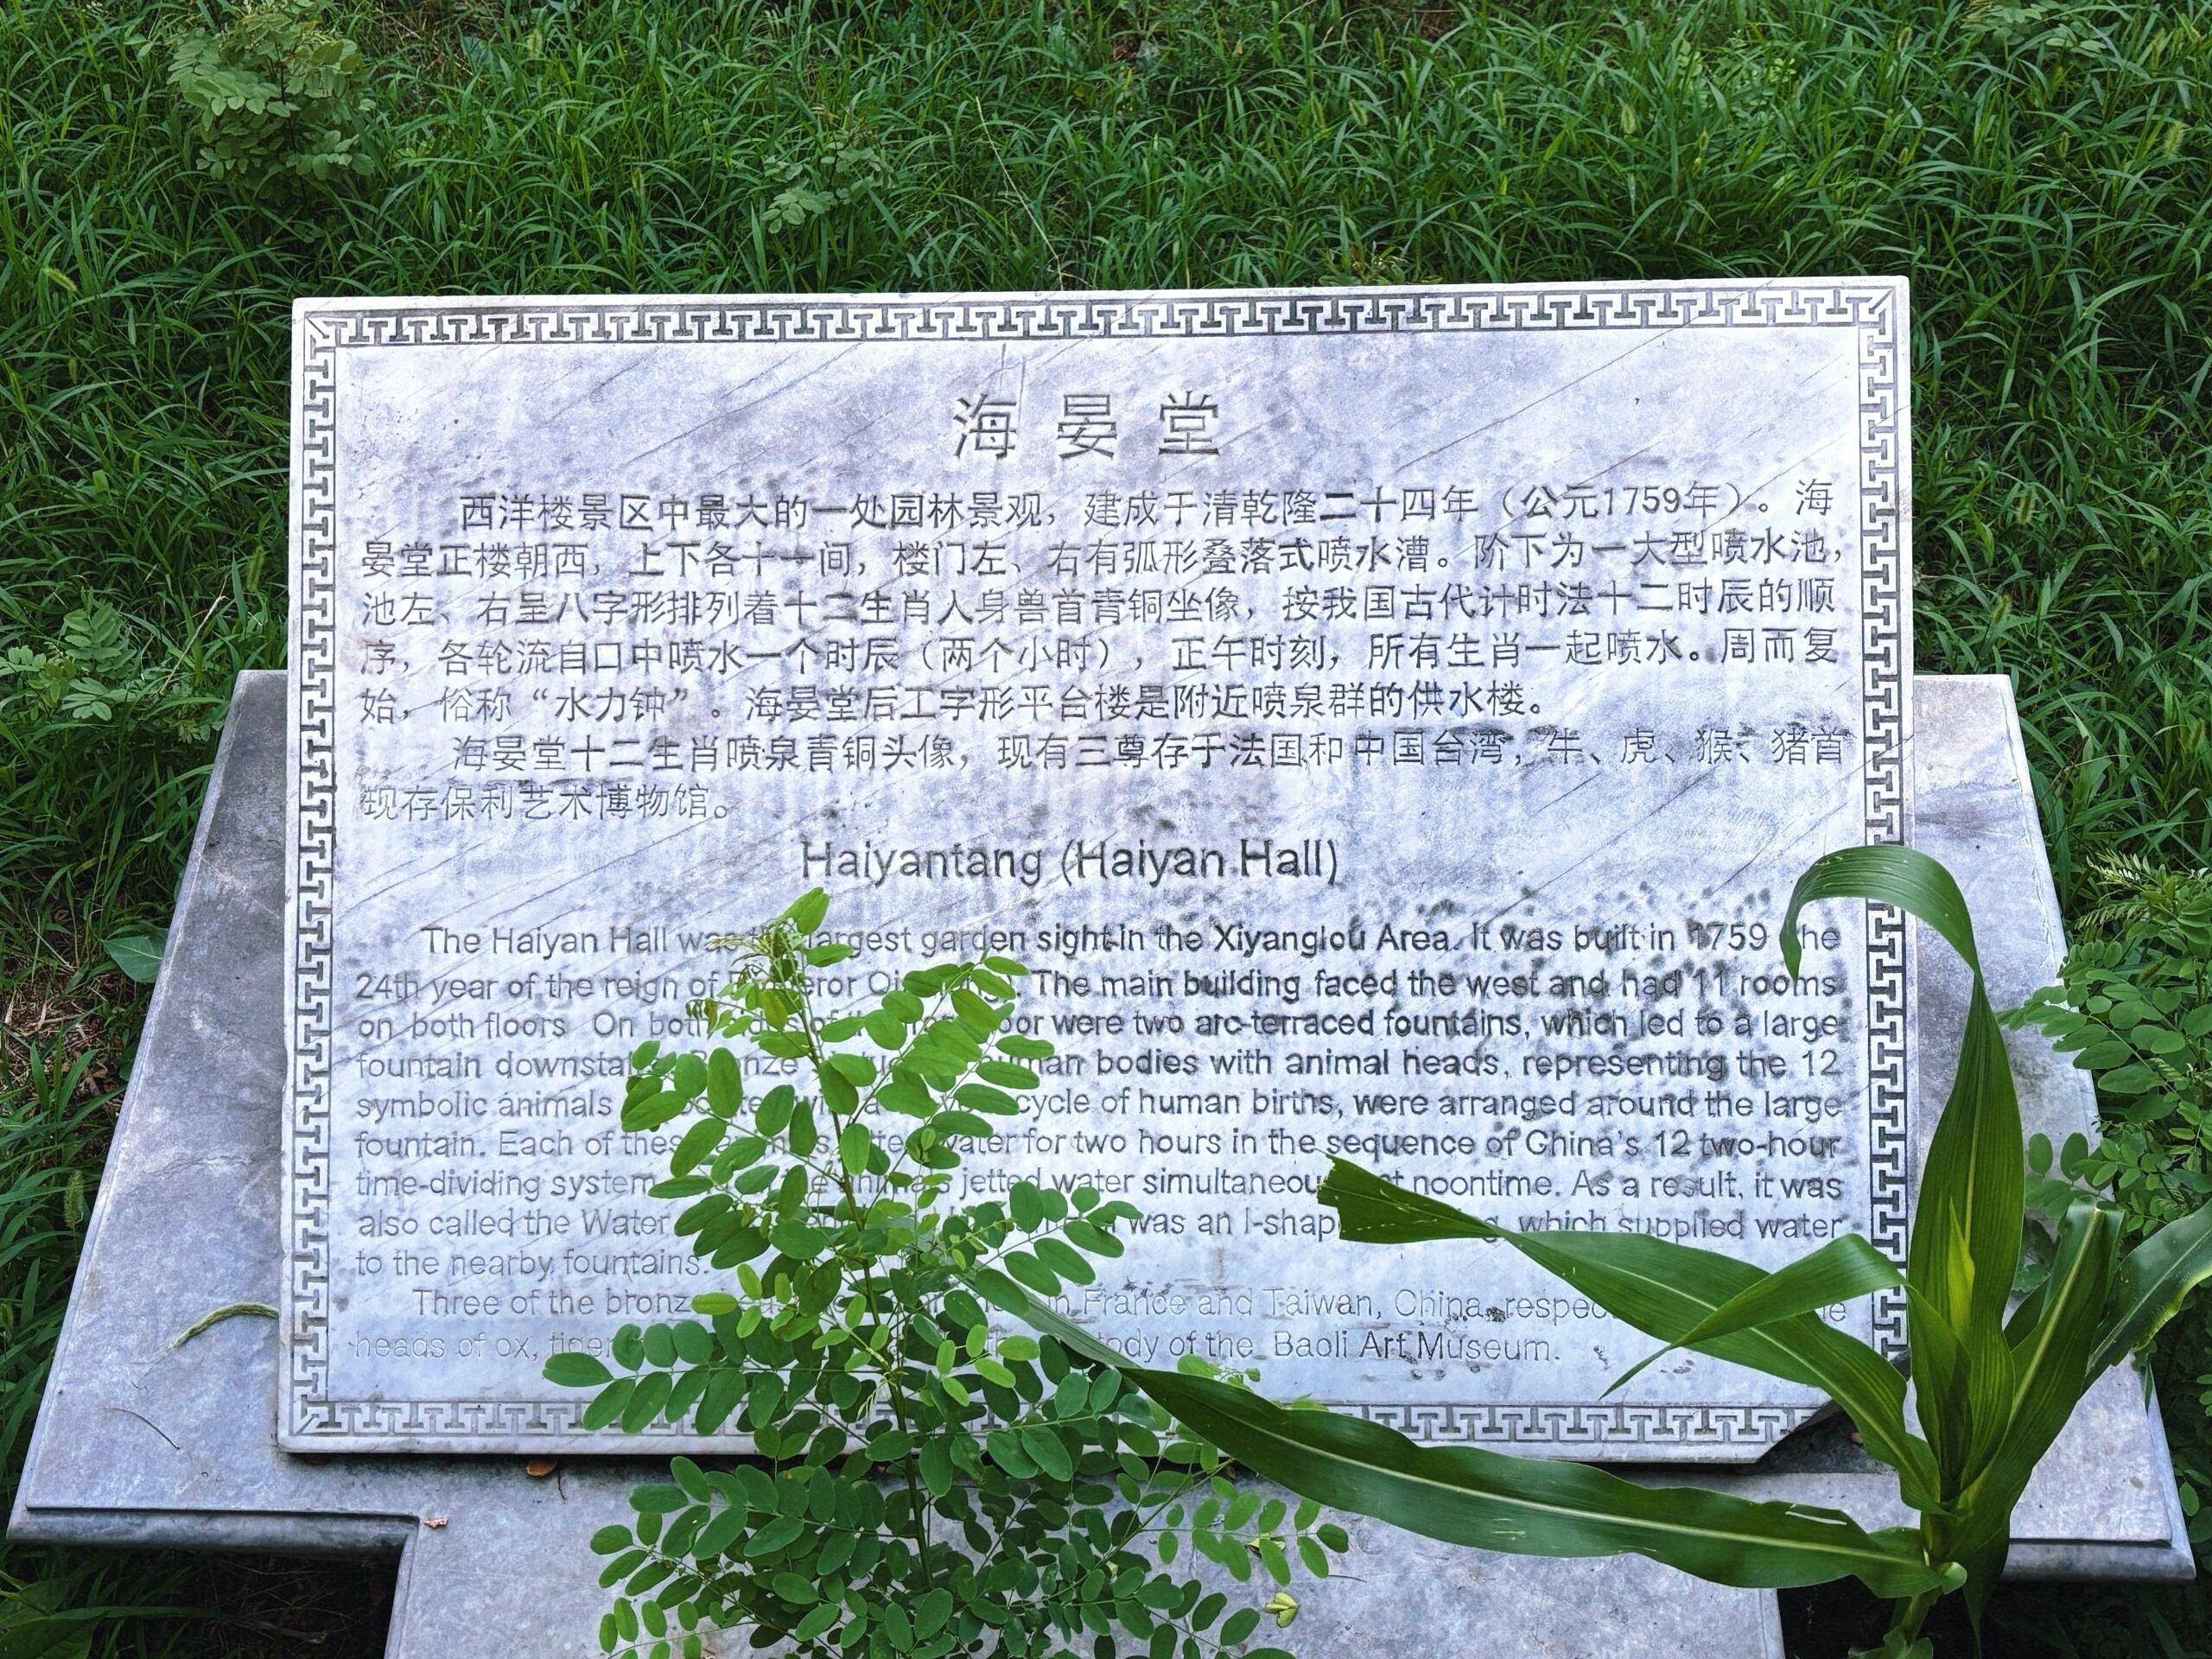 海晏堂
西洋楼景区中最大的一处园林景观，建成于清乾隆二十四年（公元1759年）。海
晏堂正楼朝西，上下各十一间，楼门左、右有弧形叠落式喷水漕。阶下为一大型喷水池，
池左、右呈八字形排列着十二生肖人身兽首青铜坐像，按我国古代计时法十二时辰的顺
序，各轮流自口中喷水一个时辰（两个小时），正午时刻，所有生肖一起喷水。周而复
始，俗称“水力钟”。海晏堂后工字形平台楼是附近喷泉群的供水楼。
海晏堂十二生肖喷泉青铜头像，现有三尊存于法国和中国台湾，牛、虎、猴、猪首
现存保利艺术博物馆。
Haiyantang (Haiyan Hall)
The Haiyan Hall was largest garden sight in the Xiyanglou Area. It was built in 1759
24th year of the reign of The main building faced the west and had 11 rooms
on both floors On both were two arc-terraced fountains, which led to a large
fountain bodies with animal heads, representing the 12
symbolic animals cycle of human births, were arranged around the large
fountain. Each of water for two hours in the sequence of China's 12 two-hour
time-dividing system jetted water simultaneously at noontime. As a result, it was
also called the Water was an which supplied water
to the nearby fountains.
Three of the in France and Taiwan, China,
heads of ox, tiger of the Baoli Art Museum.